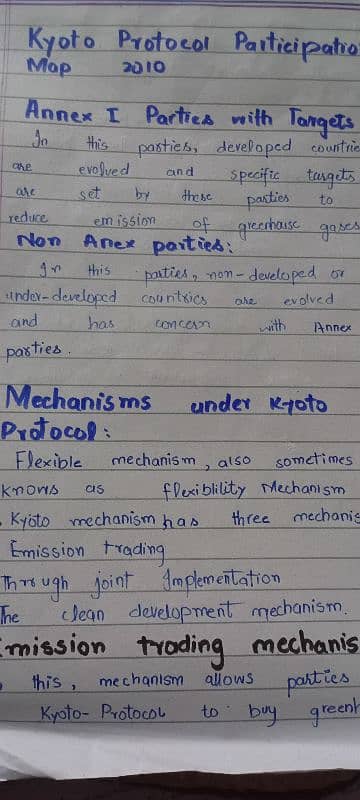 Kyoto Protocol Participatio
Map 2010
Annex I Parties with Targets
In this parties, developed countrie
are evolved and specific targets
are set by these parties to
reduce emission of greenhouse gases
Non Anex parties:
In this parties, non-developed or
under-developed countries are evolved
and has concern with Annex
parties.
Mechanisms under Kyoto
Protocol:
Flexible mechanism, also sometimes
knows as flexiblility Mechanism
Kyoto mechanism has three mechanis
Emission trading
Through joint Implementation
The clean development mechanism.
mission trading mechanis
this, mechanism allows parties
Kyoto-Protocol to buy greenh